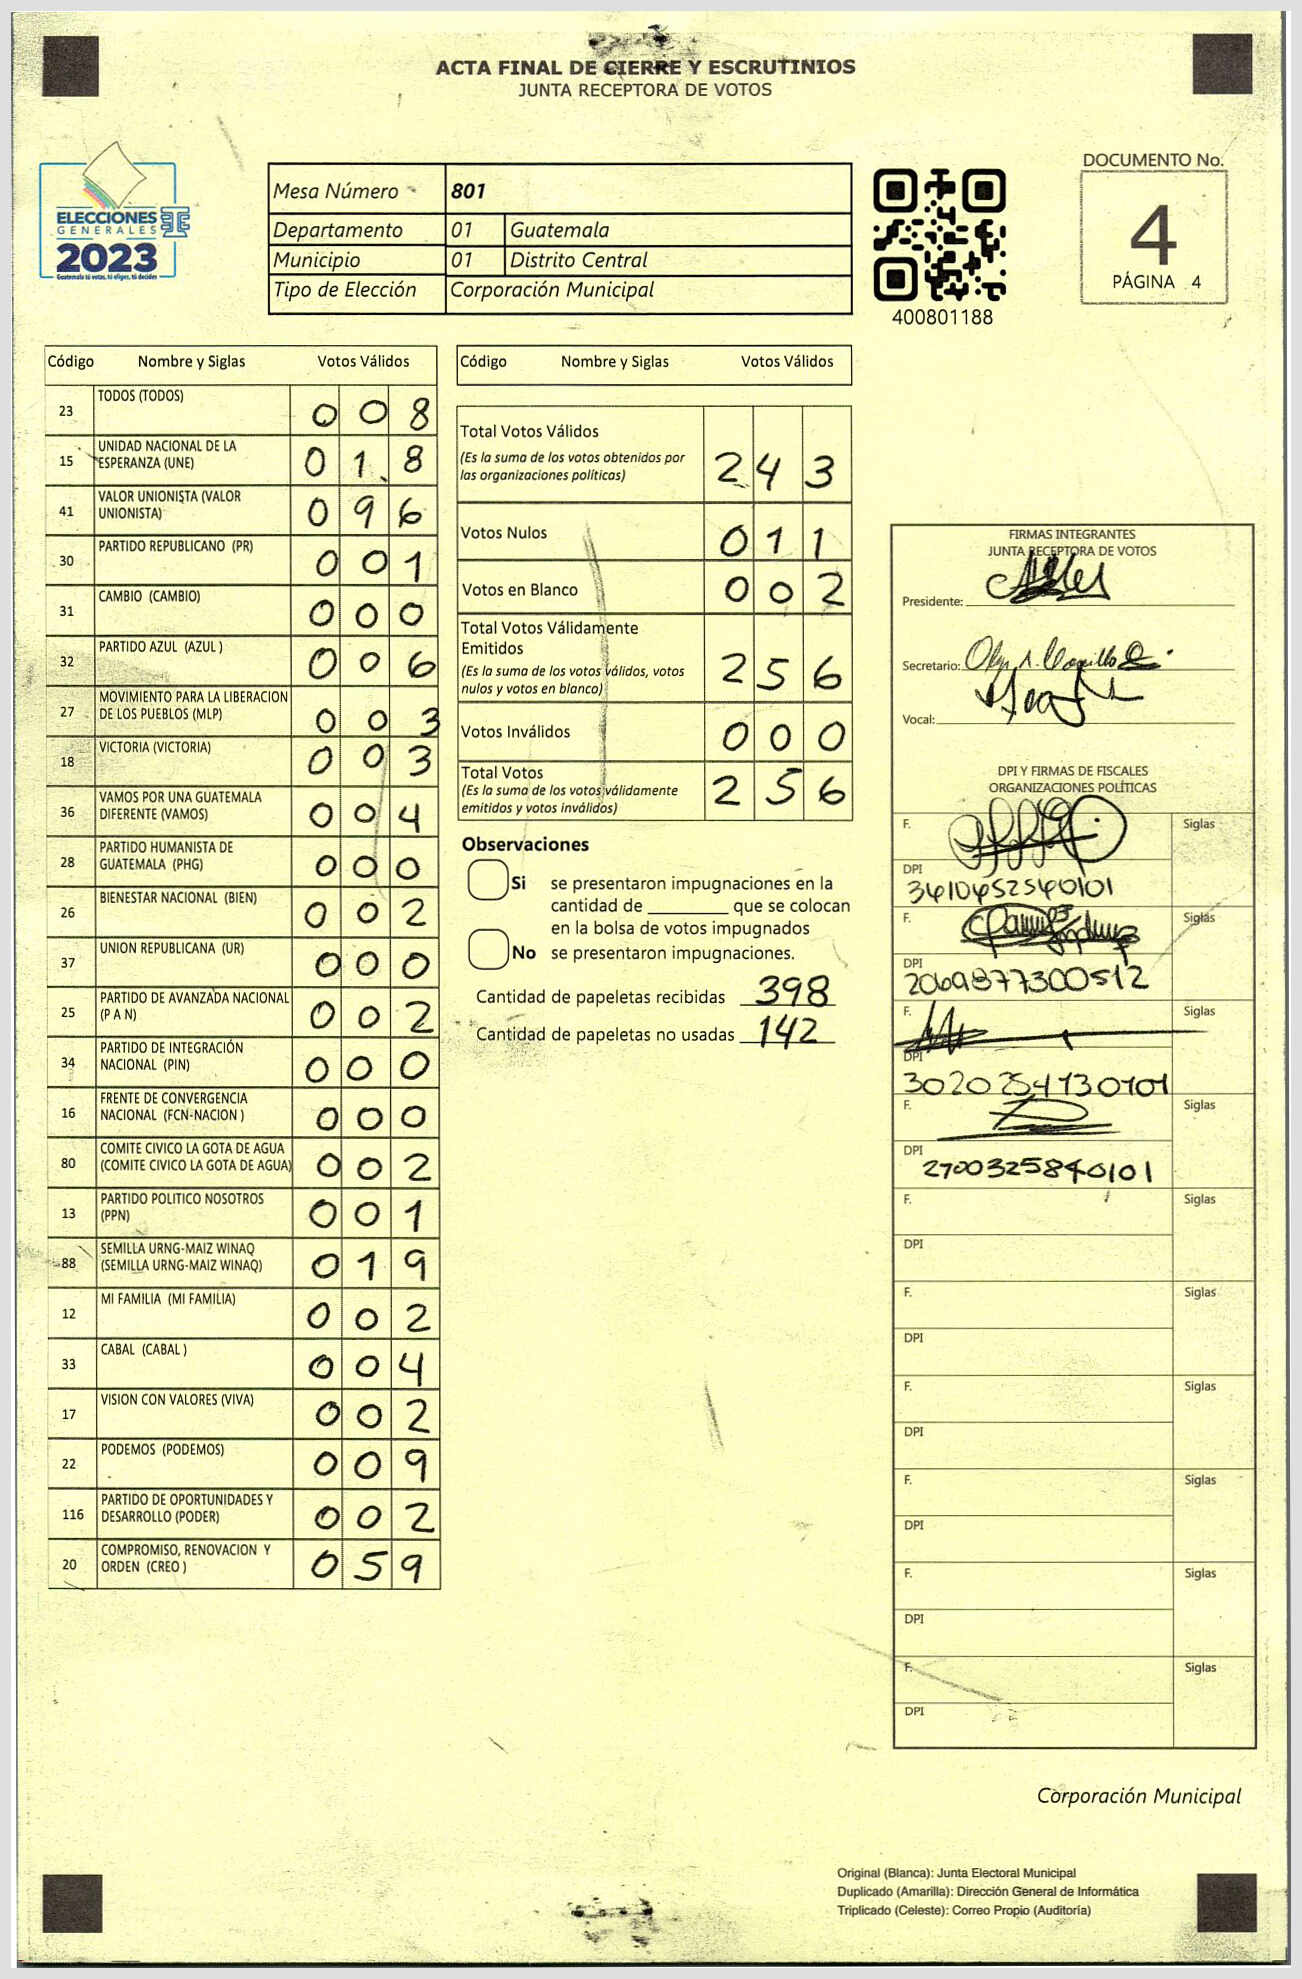 ACTA FINAL DE CIERRE Y ESCRUTINIOS
JUNTA RECEPTORA DE VOTOS
ELECCIONES
GENERALES
2023
Guatemala tú votas, tú eliges, tú decides
Mesa Número 801
Departamento 01 Guatemala
Municipio 01 Distrito Central
Tipo de Elección Corporación Municipal
400801188
DOCUMENTO No.
4
PÁGINA 4
Código Nombre y Siglas Votos Válidos
23 TODOS (TODOS) 0 0 8
15 UNIDAD NACIONAL DE LA
ESPERANZA (UNE) 0 1 8
41 VALOR UNIONISTA (VALOR
UNIONISTA) 0 9 6
30 PARTIDO REPUBLICANO (PR) 0 0 1
31 CAMBIO (CAMBIO) 0 0 0
32 PARTIDO AZUL (AZUL ) 0 0 6
27 MOVIMIENTO PARA LA LIBERACION
DE LOS PUEBLOS (MLP) 0 0 3
18 VICTORIA (VICTORIA) 0 0 3
36 VAMOS POR UNA GUATEMALA
DIFERENTE (VAMOS) 0 0 4
28 PARTIDO HUMANISTA DE
GUATEMALA (PHG) 0 0 0
26 BIENESTAR NACIONAL (BIEN) 0 0 2
37 UNION REPUBLICANA (UR) 0 0 0
25 PARTIDO DE AVANZADA NACIONAL
(P A N) 0 0 2
34 PARTIDO DE INTEGRACIÓN
NACIONAL (PIN) 0 0 0
16 FRENTE DE CONVERGENCIA
NACIONAL (FCN-NACION ) 0 0 0
80 COMITE CIVICO LA GOTA DE AGUA
(COMITE CIVICO LA GOTA DE AGUA) 0 0 2
13 PARTIDO POLITICO NOSOTROS
(PPN) 0 0 1
88 SEMILLA URNG-MAIZ WINAQ
(SEMILLA URNG-MAIZ WINAQ) 0 1 9
12 MI FAMILIA (MI FAMILIA) 0 0 2
33 CABAL (CABAL ) 0 0 4
17 VISION CON VALORES (VIVA) 0 0 2
22 PODEMOS (PODEMOS) 0 0 9
116 PARTIDO DE OPORTUNIDADES Y
DESARROLLO (PODER) 0 0 2
20 COMPROMISO, RENOVACION Y
ORDEN (CREO ) 0 5 9
Código Nombre y Siglas Votos Válidos
Total Votos Válidos
(Es la suma de los votos obtenidos por
las organizaciones políticas) 2 4 3
Votos Nulos 0 1 1
Votos en Blanco 0 0 2
Total Votos Válidamente
Emitidos
(Es la suma de los votos válidos, votos
nulos y votos en blanco) 2 5 6
Votos Inválidos 0 0 0
Total Votos
(Es la suma de los votos válidamente
emitidos y votos inválidos) 2 5 6
Observaciones
Si se presentaron impugnaciones en la
cantidad de ________ que se colocan
en la bolsa de votos impugnados
No se presentaron impugnaciones.
Cantidad de papeletas recibidas 398
Cantidad de papeletas no usadas 142
FIRMAS INTEGRANTES
JUNTA RECEPTORA DE VOTOS
Presidente:
Secretario:
Vocal:
DPI Y FIRMAS DE FISCALES
ORGANIZACIONES POLÍTICAS
F. Siglas
DPI
3410452540101
F. Siglas
DPI
2069877300512
F. Siglas
DPI
3020254130101
F. Siglas
DPI
2700325840101
F. Siglas
DPI
F. Siglas
DPI
F. Siglas
DPI
F. Siglas
DPI
F. Siglas
DPI
F. Siglas
DPI
Corporación Municipal
Original (Blanca): Junta Electoral Municipal
Duplicado (Amarilla): Dirección General de Informática
Triplicado (Celeste): Correo Propio (Auditoría)